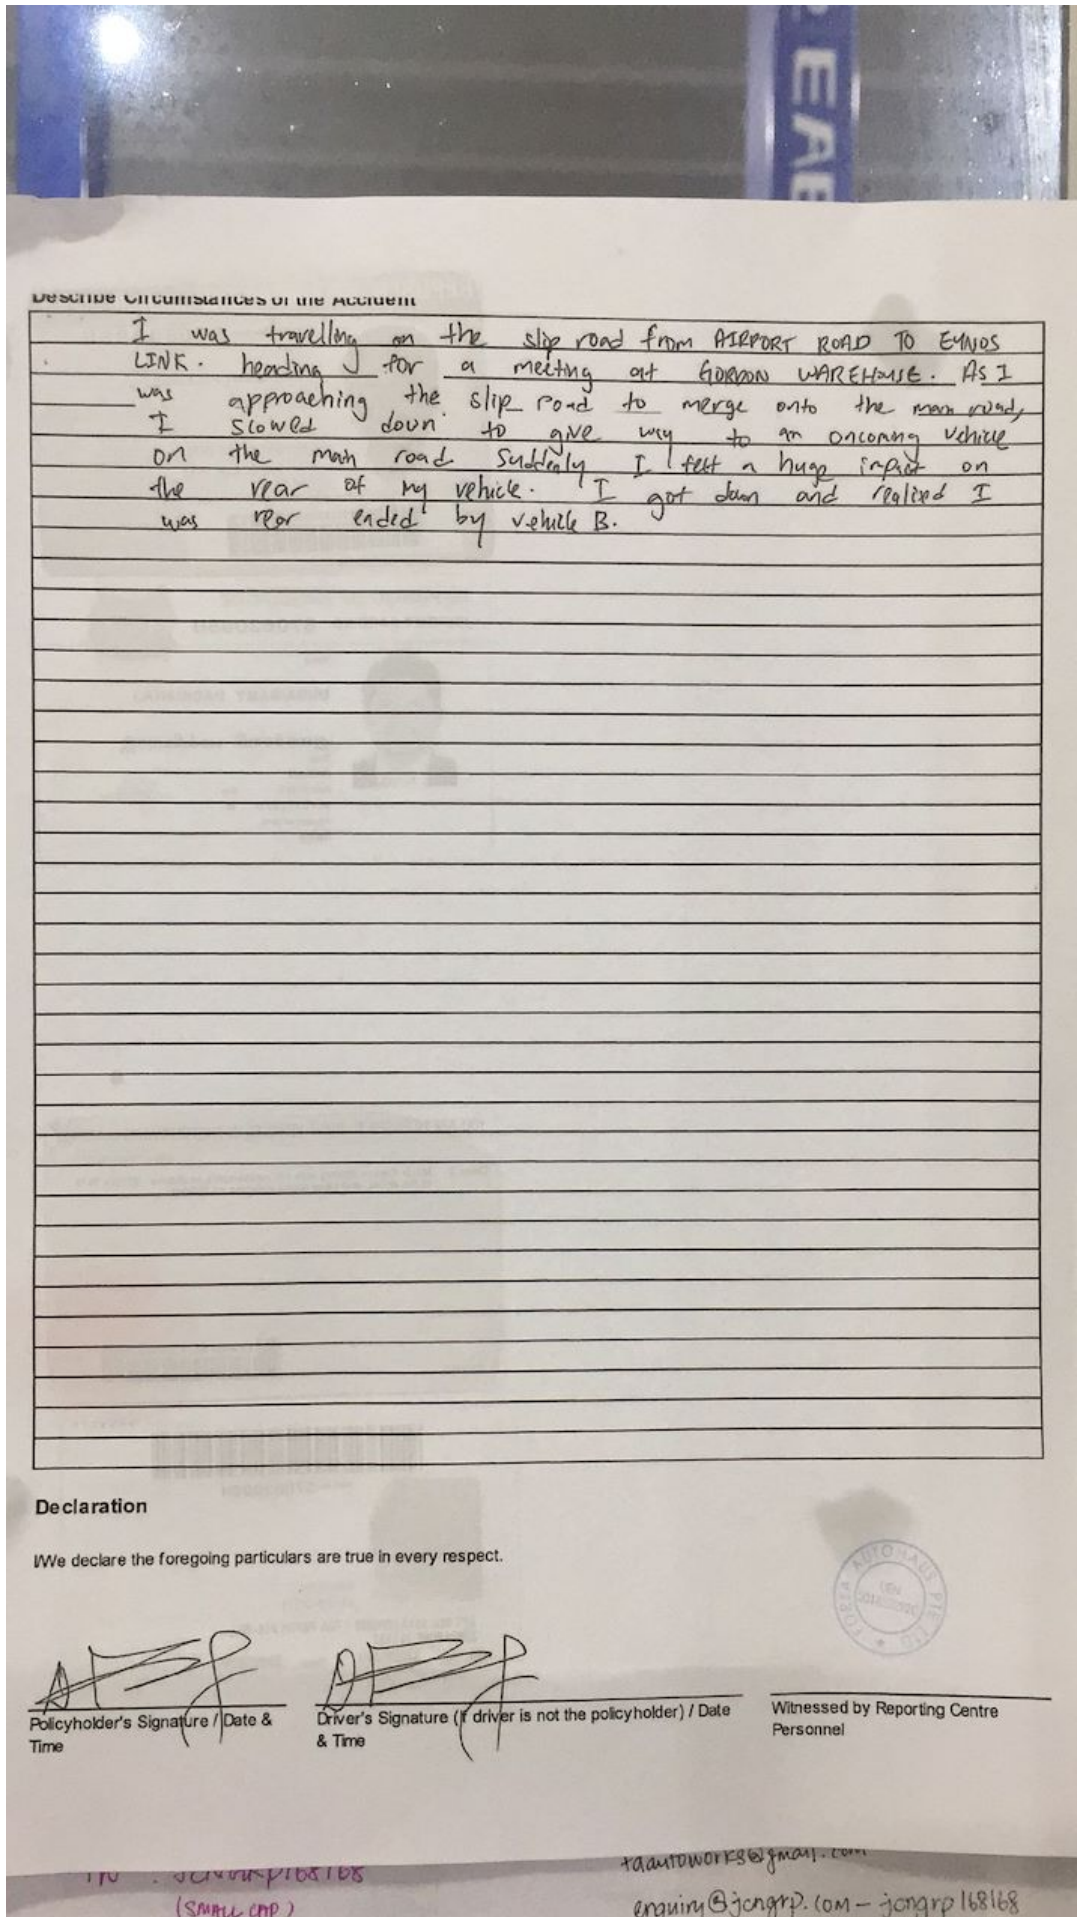 EAB
Describe Circumstances of the Accident
I was travelling on the slip road from AIRPORT ROAD TO EUNOS
LINK. heading for a meeting at GORDON WAREHOUSE. AS I
was approaching the slip road to merge onto the main road,
I slowed down to give way to an oncoming vehicle
on the main road suddenly I felt a huge impact on
the rear of my vehicle. I got down and realized I
was rear ended by vehicle B.
Declaration
I/We declare the foregoing particulars are true in every respect.
AUTOHAUS PTE LTD
UEN
Policyholder's Signature / Date &
Time
Driver's Signature (If driver is not the policyholder) / Date
& Time
Witnessed by Reporting Centre
Personnel
(SMALL CAP)
enquiry@jcngrp.com – jcngrp168168